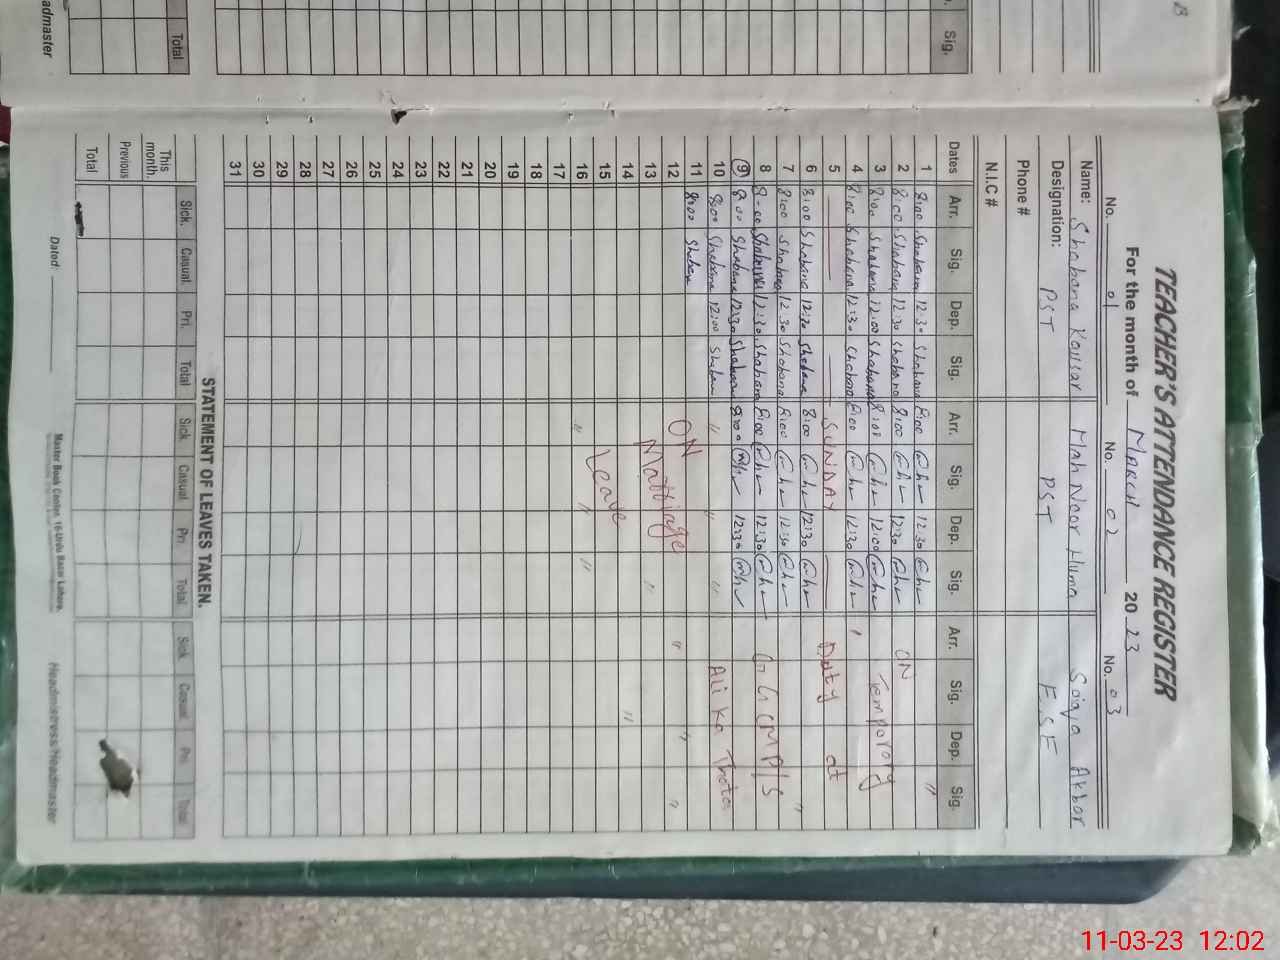 TEACHER'S ATTENDANCE REGISTER
For the month of MARCH 2023
No. 01 No. 02 No. 03
Name: Shabana Kousar Mah Noor Huma Saiqa Akbar
Designation: PST PST E.S.E
Phone #
N.I.C #
Dates Arr. Sig. Dep. Sig. Arr. Sig. Dep. Sig. Arr. Sig. Dep. Sig.
1 8:00 Shabana 12:30 Shabana 8:00 12:30 "
2 8:00 Shabana 12:30 Shabana 8:00 12:30 ON
3 8:00 Shabana 12:00 Shabana 8:00 12:00 Temporory
4 8:00 Shabana 12:30 Shabana 8:00 12:30
5 SUNDAY Duty at
6 8:00 Shabana 12:30 Shabana 8:00 12:30 "
7 8:00 Shabana 12:30 Shabana 8:00 12:30
8 8:00 Shabana 12:30 Shabana 8:00 12:30 GGCMP/S
9 8:00 Shabana 12:30 Shabana 8:00 12:30
10 8:00 Shabana 12:00 Shabana " " " Ali Ka
11 8:00 Shabana
12 ON " " "
13 Marriage "
14 "
15 Leave
16 " " "
17
18
19
20
21
22
23
24
25
26
27
28
29
30
31
STATEMENT OF LEAVES TAKEN.
Sick. Casual. Pri. Total Sick Casual Pri Total Sick Casual Pri Total
This month.
Previous
Total
Dated: Master Book Center, 16-Urdu Bazar Lahore. Headmistress/Headmaster
Sig.
Total
admaster
11-03-23 12:02